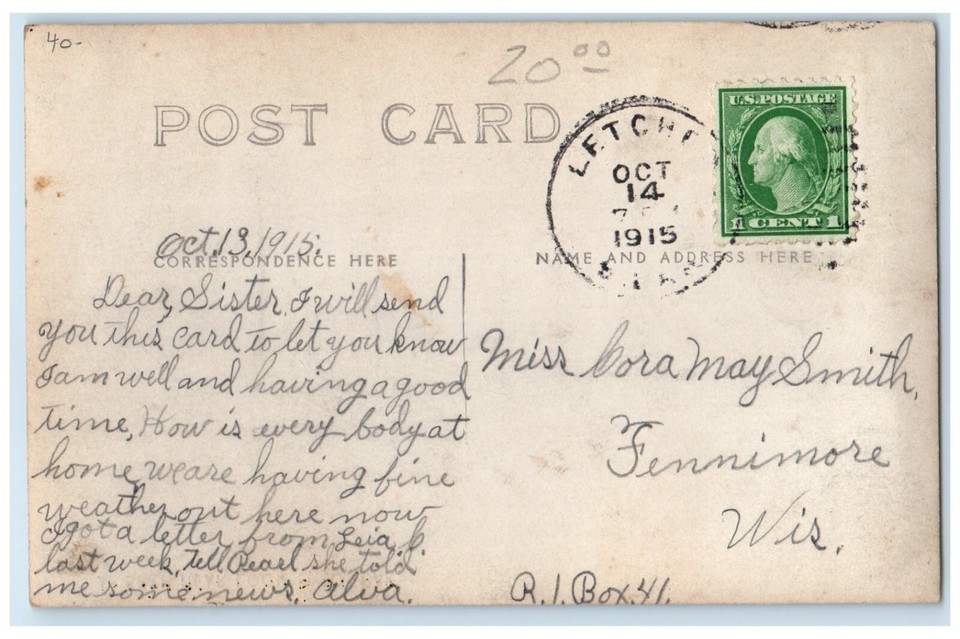 40-
20 00
POST CARD
U.S. POSTAGE
1 CENT 1
LETCHE
OCT
14
1915
S. DAK
Oct. 13, 1915.
CORRESPONDENCE HERE
NAME AND ADDRESS HERE
Dear, Sister, I will send
you this card to let you know
I am well and having a good
time, How is every body at
home, we are having fine
weather out here now
I got a letter from
last week, Tell Pearl she told
me some news. Alva.
Miss Cora May Smith,
Fennimore
Wis,
R. 1. Box. 41.